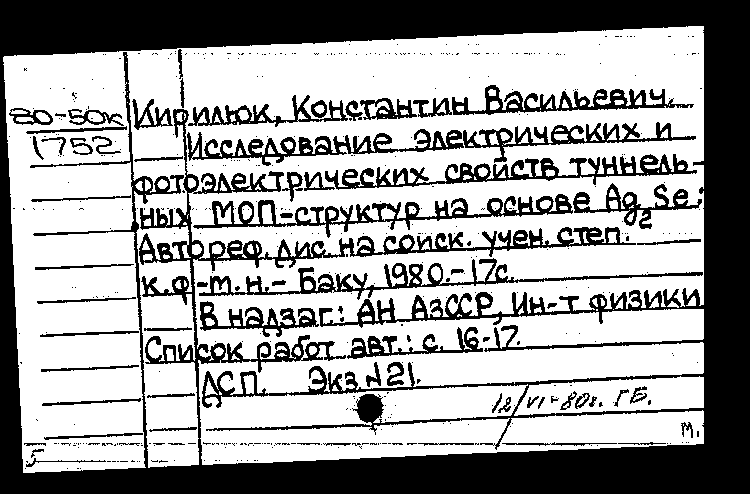 80-50к Кирилюк, Константин Васильевич.
1752 Исследование электрических и
фотоэлектрических свойств туннель-
ных МОП-структур на основе Ag₂Se:
Автореф. дис. на соиск. учен. степ.
к.ф-т.н.- Баку, 1980.-17с.
В надзаг.: АН АзССР, Ин-т физики
Список работ авт.: с. 16-17.
ДСП. Экз.№21.
12/VI-80г. ГБ.
М.
5